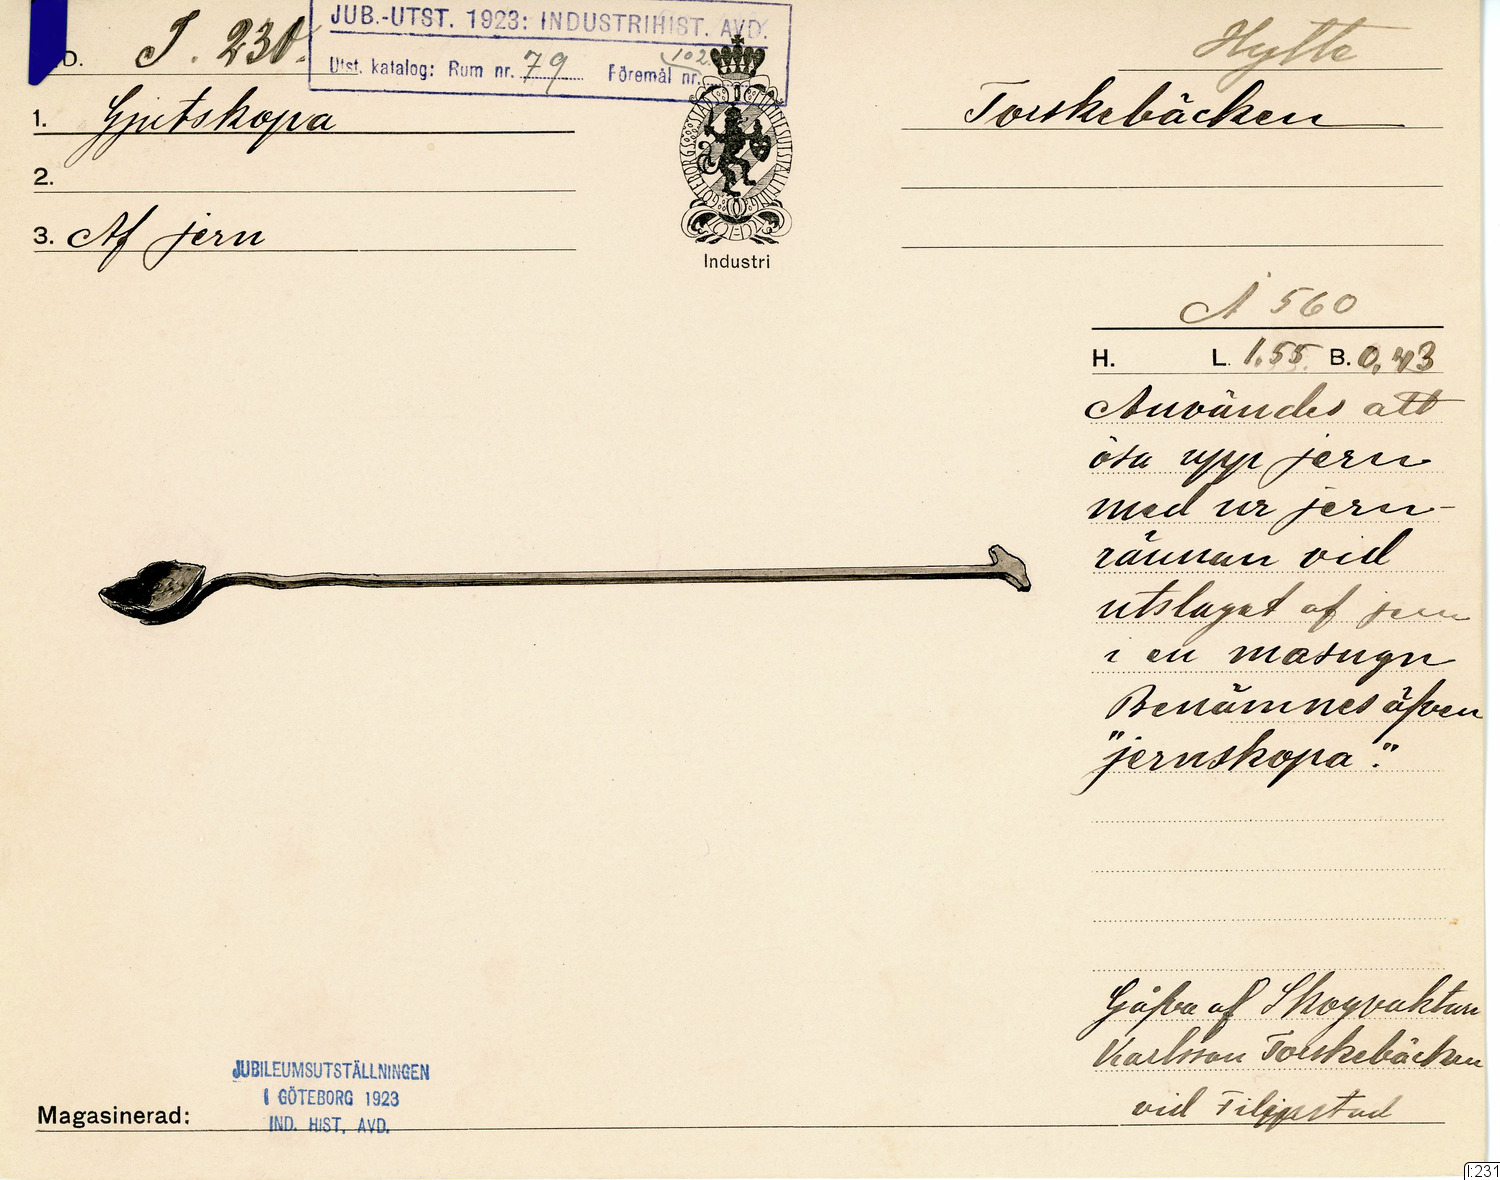 JUB.-UTST. 1923: INDUSTRIHIST. AVD.
Utst. katalog: Rum nr. 79 Föremål nr. 102
D. I. 230.
Hytte
1. Gjutskopa
Torskebäcken
2.
3. Af jern
GÖTEBORGS STADS MINNESUTSTÄLLNING
Industri
A 560
H. L. 1.55 B. 0,43
Användes att
ösa upp jern
med ur jern-
rännan vid
utslaget af jern
i en masugn
Benämnes äfven
"jernskopa".
Gåfva af Skogvaktaren
Karlsson Torskebäcken
vid Filipstad
JUBILEUMSUTSTÄLLNINGEN
I GÖTEBORG 1923
IND. HIST. AVD.
Magasinerad:
I:231